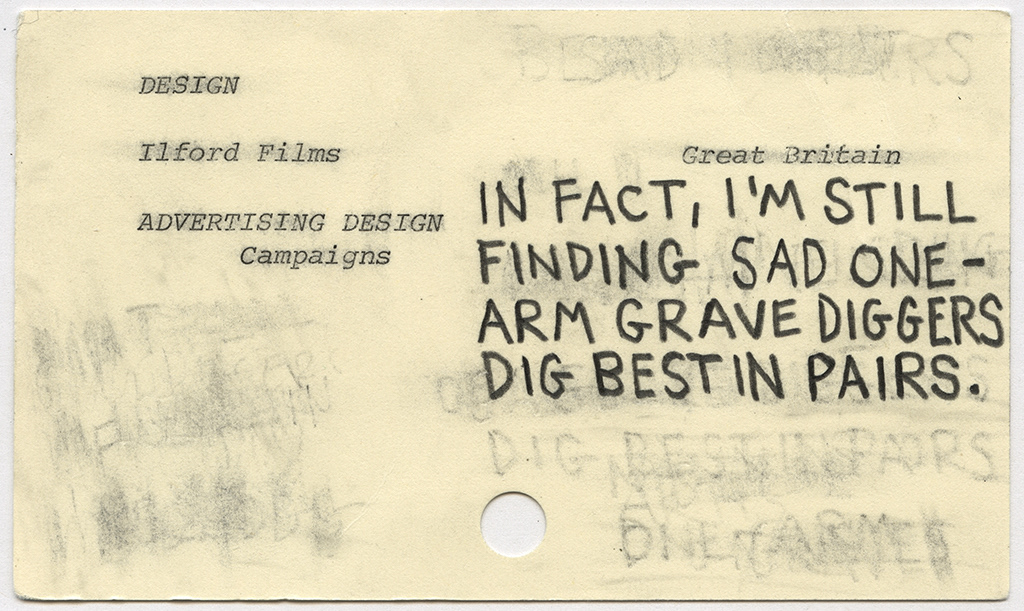 DESIGN
Ilford Films
Great Britain
ADVERTISING DESIGN
Campaigns
IN FACT, I'M STILL
FINDING SAD ONE-
ARM GRAVE DIGGERS
DIG BEST IN PAIRS.
DIG BEST IN PAIRS